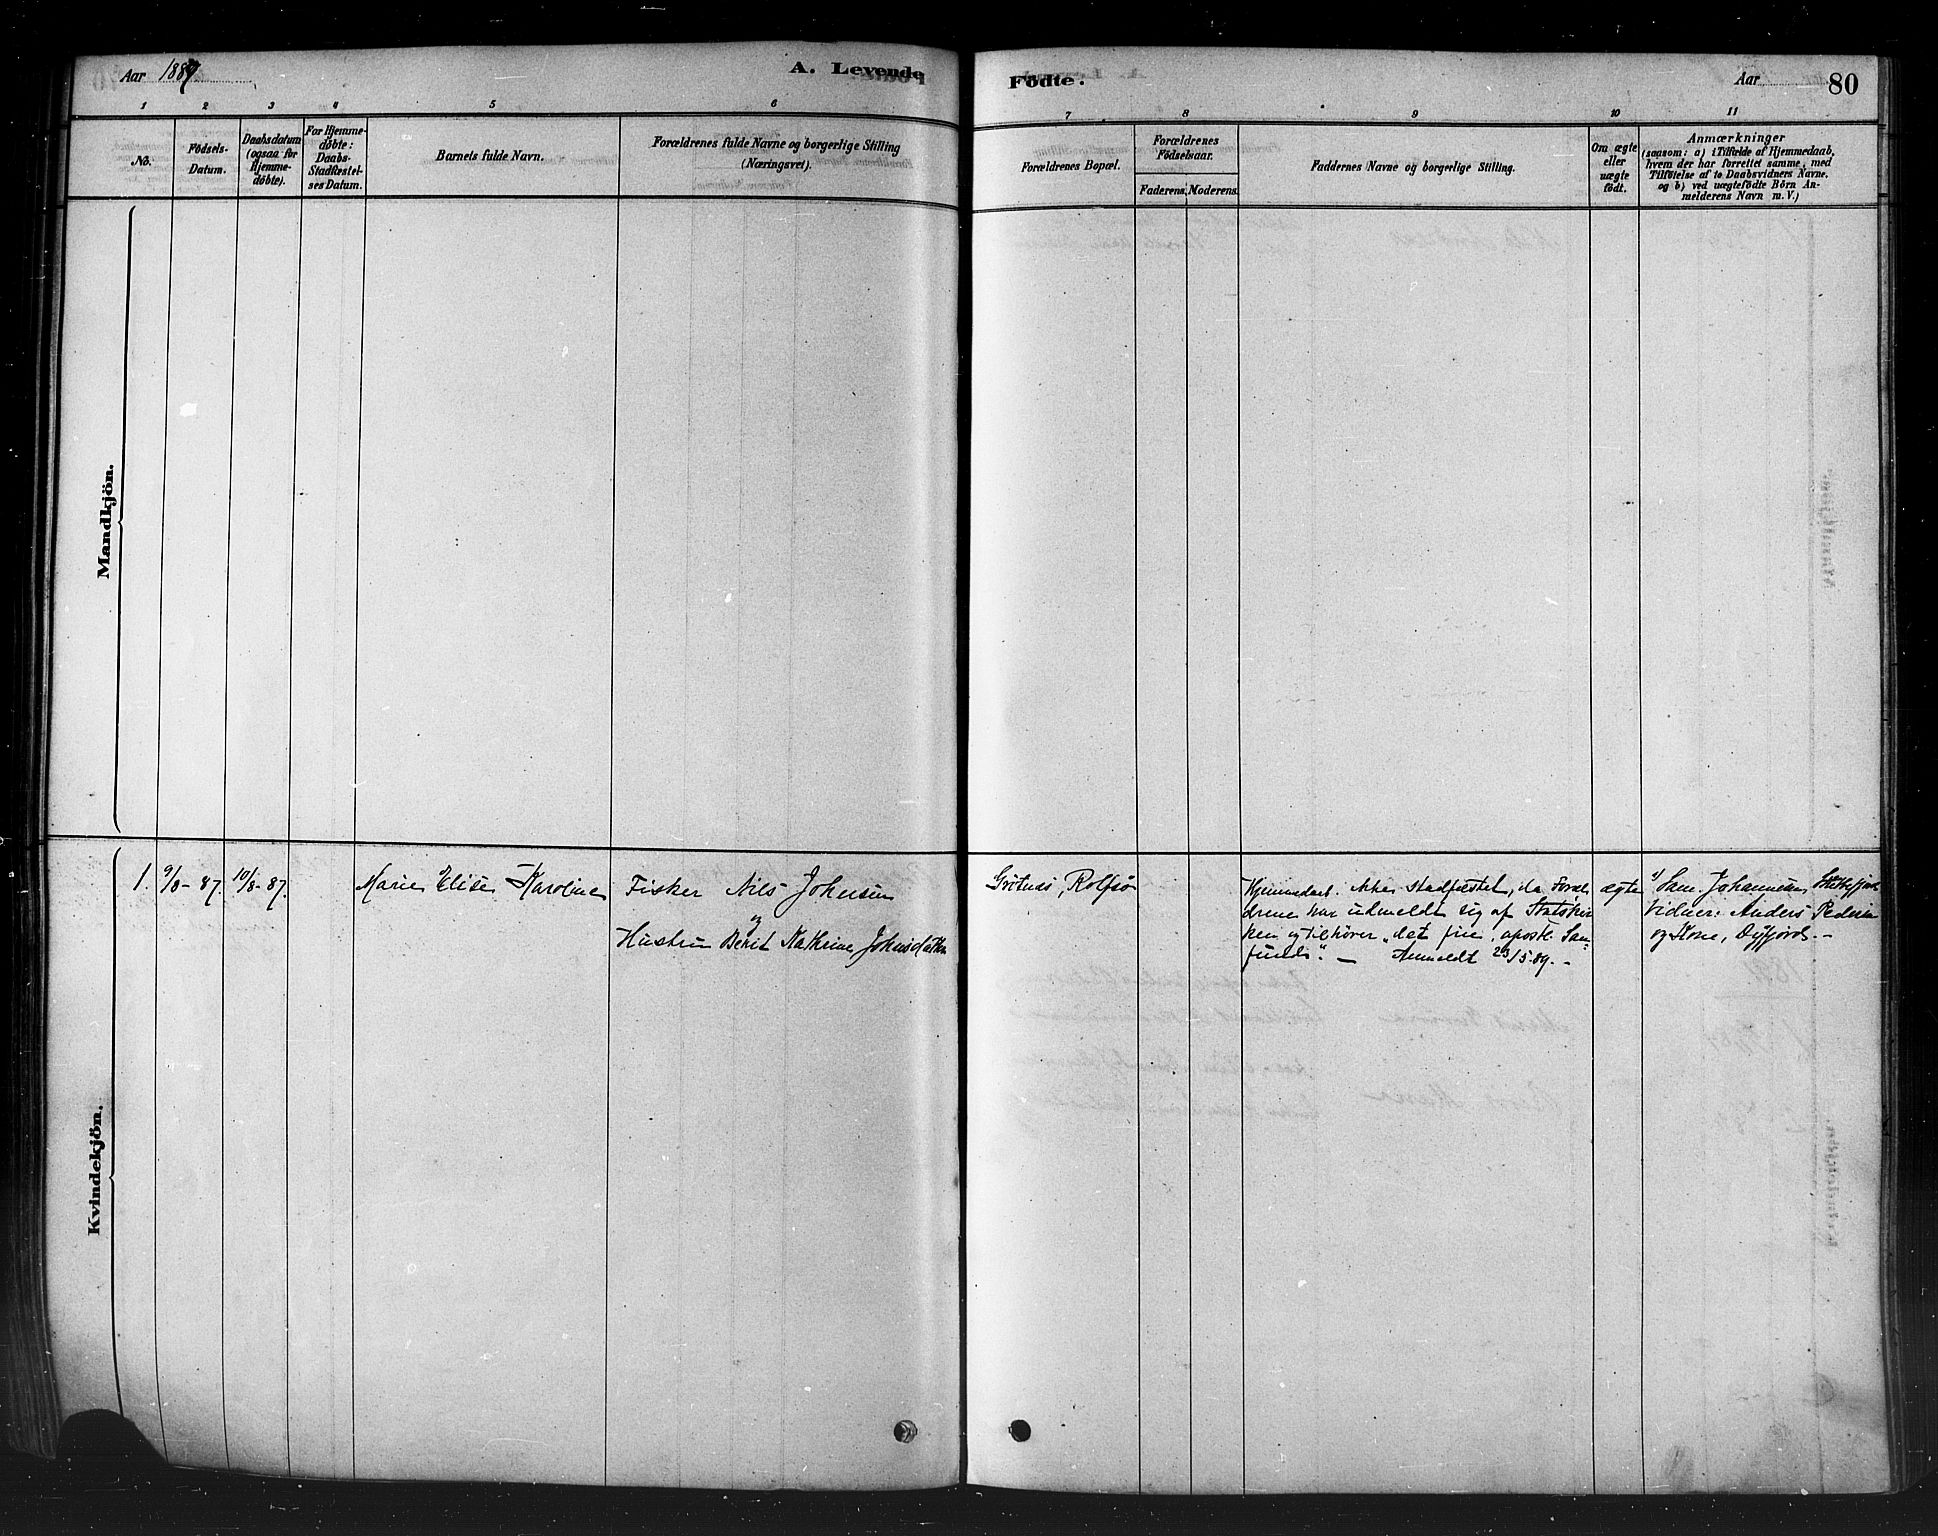 Aar 1887
A. Levende
Födte.
Aar
80
1 2 3 4 5 6 7 8 9 10 11
No.
Födsels-
Datum.
Daabsdatum
(ogsaa for
Hjemme-
döbte).
For Hjemme-
döbte:
Daabs-
Stadfæstel-
ses Datum.
Barnets fulde Navn.
Forældrenes fulde Navne og borgerlige Stilling
(Næringsvei).
Forældrenes Bopæl.
Forældrenes
Födselsaar.
Faderens. Moderens.
Faddernes Navne og borgerlige Stilling.
Om ægte
eller
uægte
födt.
Anmærkninger
(saasom: a) i Tilfælde af Hjemmedaab,
hvem der har forrettet samme, med
Tilföielse af to Daabsvidners Navne,
og b) ved uægtefödte Börn An-
melderens Navn m. V.)
Mandkjön.
Kvindekjön.
1. 9/8-87. 10/8-87. Marie Elise Karoline
Fisker Nils Johnsen
og
Hustru Berit Kathrine Johnsdatter
Grötnes, Rolfsö
Hjemmedøbt. Ikke stadfæstet, da Foræl
drene har udmeldt sig af Statskir
ken og tilhører "det frie, apost. Sam-
fund". — Anmeldt 23/5 89. -
ægte
1) Sam. Johannesen,
Vidner: Anders Pedersen
og Kone, Dyfjord. -